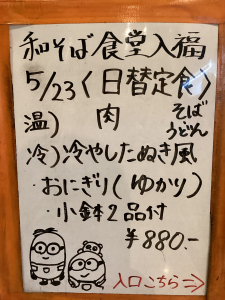 和そば食堂入福
5/23〈日替定食〉
温） 肉 そば
うどん
冷）冷やしたぬき風
・おにぎり（ゆかり）
・小鉢2品付
¥880.-
入口こちら⇒